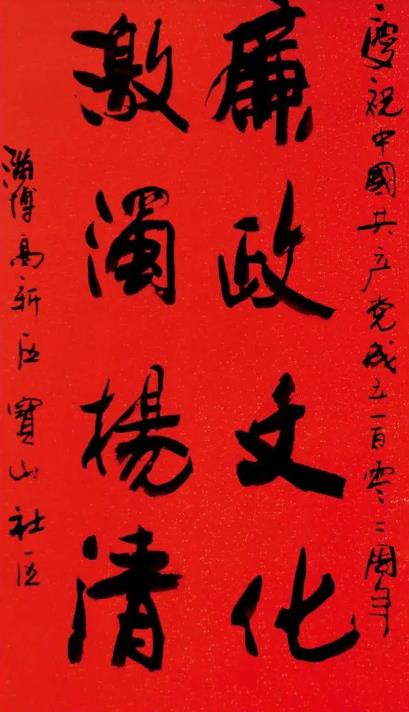 慶祝中國共产党成立一百零二周年
廉政文化
激濁揚清
淄博高新区寶山社区